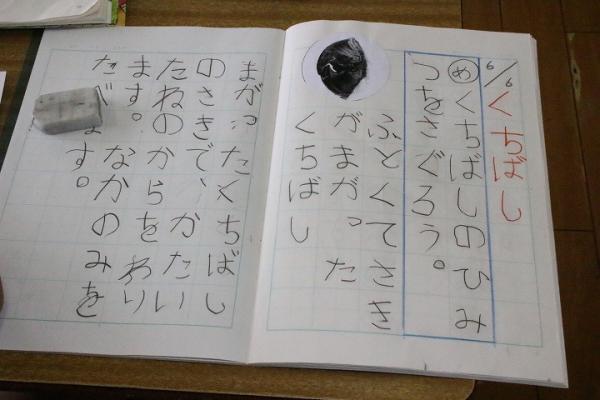 6/6
くちばし
め くちばしのひみ
つをさぐろう。
ふとくてさき
がまがった
くちばし
まがったくちばし
のさきで、かたい
たねのからをわり
ます。なかのみを
たべます。